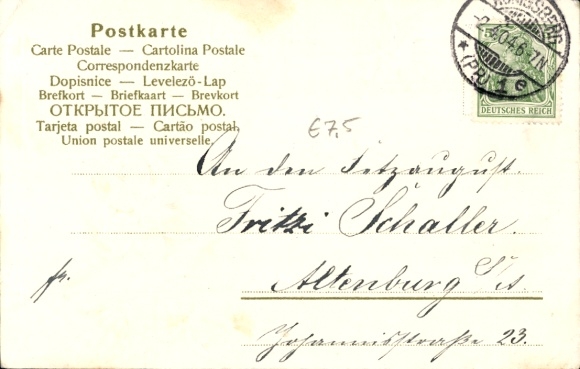 Postkarte
Carte Postale — Cartolina Postale
Correspondenzkarte
Dopisnice — Levelező-Lap
Brefkort — Briefkaart — Brevkort
ОТКРЫТОЕ ПИСЬМО.
Tarjeta postal — Cartão postal.
Union postale universelle.
-2.4.04.6-7N
*(PR) 1 e
DEUTSCHES REICH
€7,5
An den
Fritzi Schaller.
fr.
Altenburg S/A.
Johannisstraße 23.